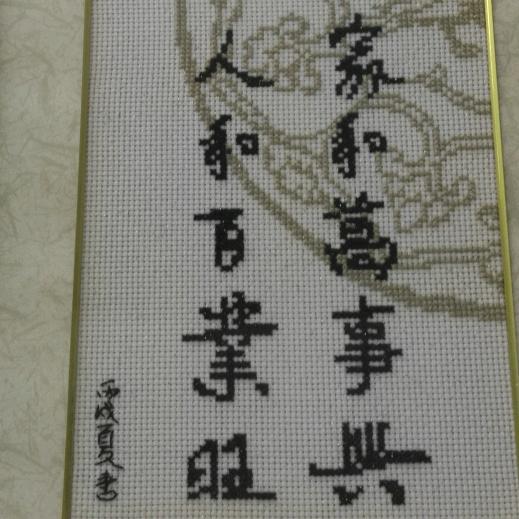 家和萬事興
人和百業旺
丙戌夏書